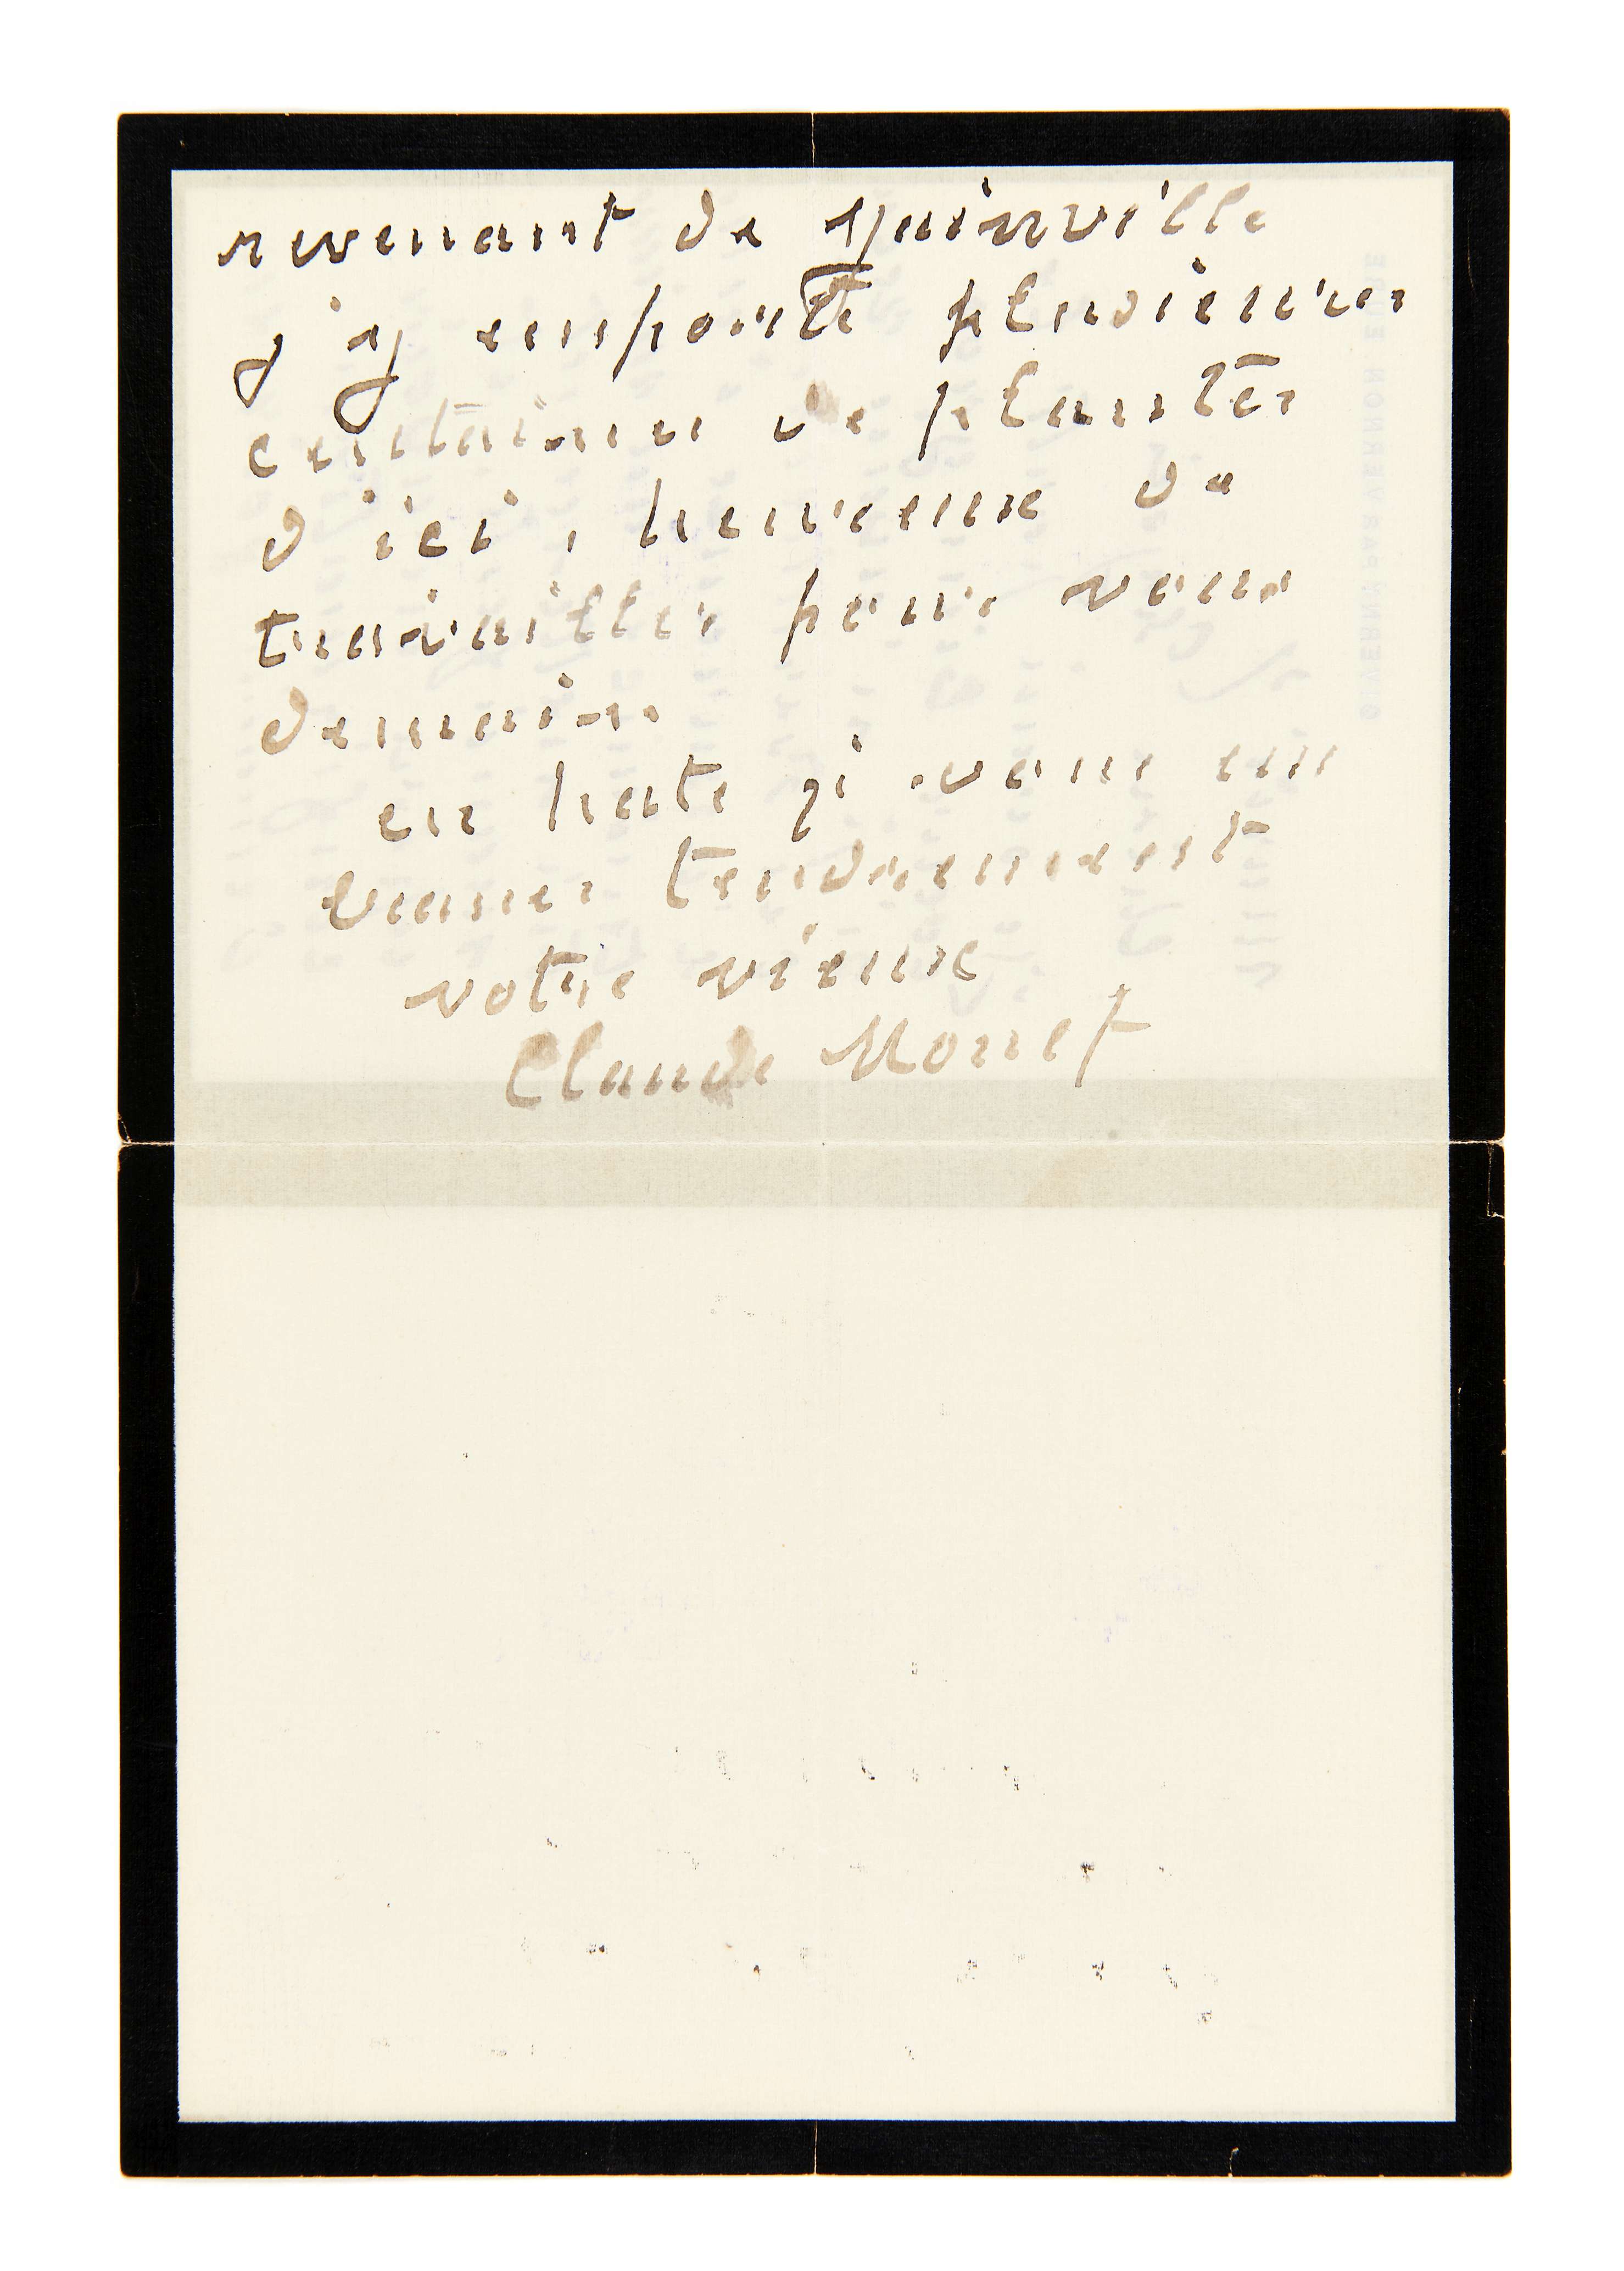 revenant de Quinéville
j'y emporte plusieurs
centaines de plantes
d'ici, heureux de
travailler pour vous
demain.
en hate je vous em
brasse tendrement
votre vieux
Claude Monet
GIVERNY PAR VERNON EURE